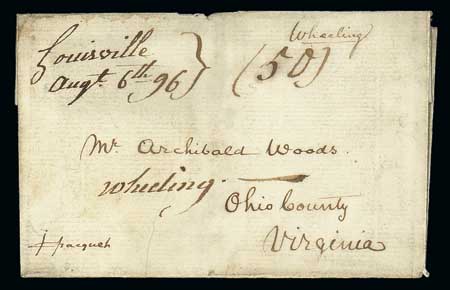 Wheeling
Louisville
Augt. 6th 96}
(50)
Mr. Archibald Woods.
Wheeling.
Ohio County
Virginia